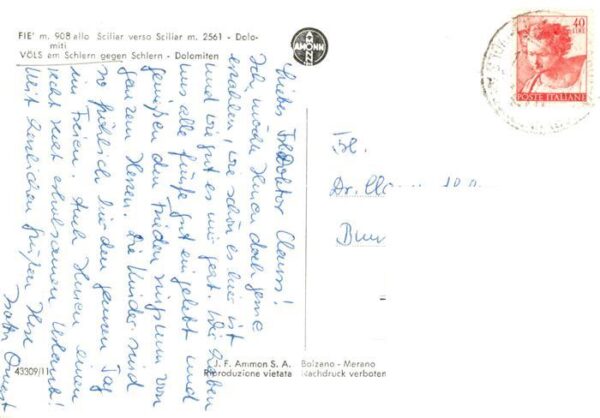 FIE' m. 908 allo Sciliar verso Sciliar m. 2561 - Dolo-
miti
VÖLS am Schlern gegen Schlern - Dolomiten
AMMON
40
LIRE
POSTE ITALIANE
Liebes Frl. Doktor Clauss!
Ich möchte Ihnen doch gerne
erzählen, wie schön es hier ist
und wie gut es mir geht. Wir haben
uns alle fünfe gut eingelebt und
genießen den Frieden ringsum von
ganzem Herzen. Die Kinder sind
so fröhlich bei den ganzen Tag
im Freien. Auch Ihnen einen
recht recht erholsamen Urlaub!
Mit herzlichen Grüßen Ihre
Frl.
Dr. Cla
43309/11
J. F. Ammon S. A. Bolzano - Merano
Riproduzione vietata Nachdruck verboten